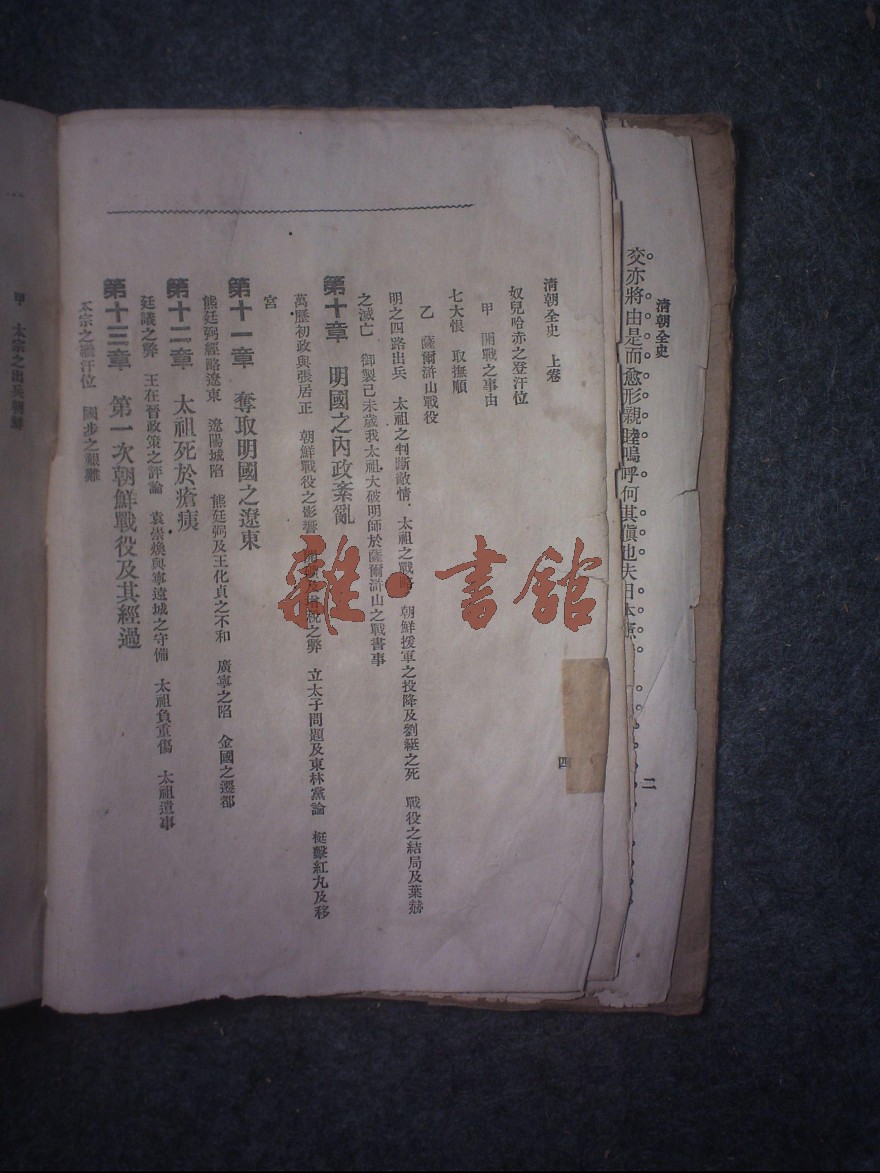 清朝全史
交亦將由是而愈形親睦嗚呼何其傎也夫日本憲
二
清朝全史　上卷
四
奴兒哈赤之登汗位
甲　開戰之事由
七大恨　取撫順
乙　薩爾滸山戰役
明之四路出兵　太祖之判斷敵情　太祖之戰略　朝鮮援軍之投降及劉綎之死　戰役之結局及葉赫
之滅亡　御製己未歲我太祖大破明師於薩爾滸山之戰書事
第十章　明國之內政紊亂
萬歷初政與張居正　朝鮮戰役之影響　之弊　立太子問題及東林黨論　梃擊紅丸及移
宮
第十一章　奪取明國之遼東
熊廷弼經略遼東　遼陽城陷　熊廷弼及王化貞之不和　廣寧之陷　金國之遷都
第十二章　太祖死於瘡痍
廷議之弊　王在晉政策之評論　袁崇煥與寧遠城之守備　太祖負重傷　太祖遺事
第十三章　第一次朝鮮戰役及其經過
太宗之繼汗位　國步之艱難
甲　太宗之出兵朝鮮
雜·書館